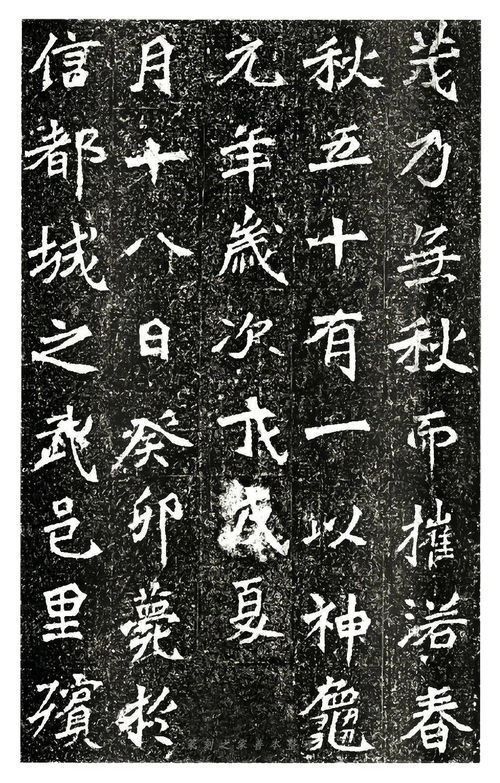 茂乃無秋而摧落春
秋五十有一以神龜
元年歲次戊戌夏
月十八日癸卯薨於
信都城之武邑里殯